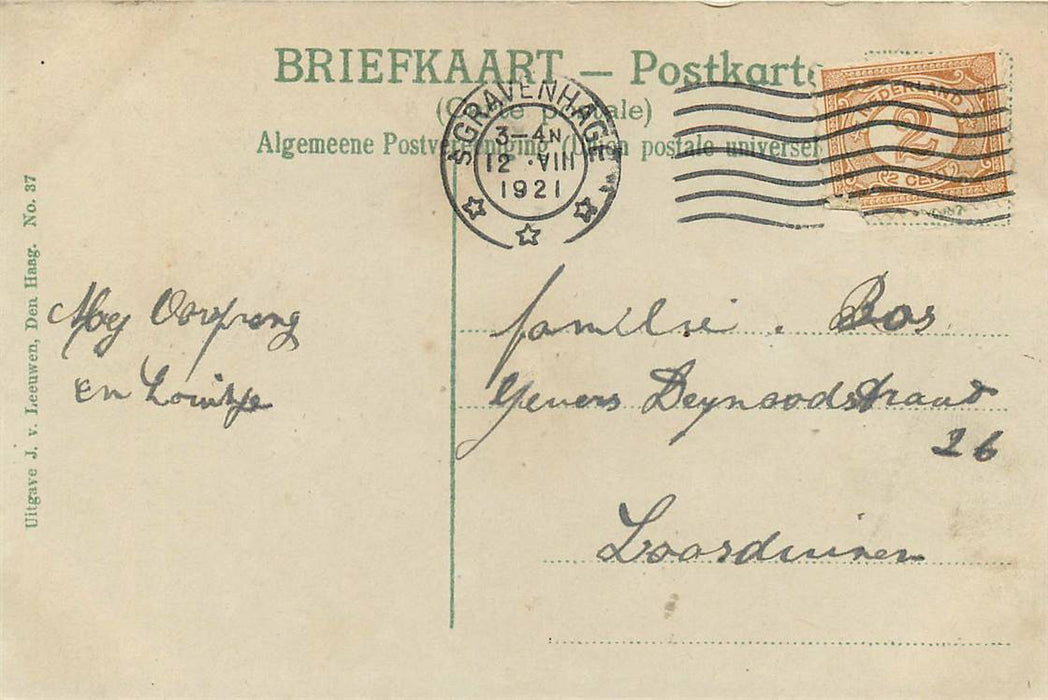 BRIEFKAART — Postkarte
(Carte postale)
Algemeene Postvereeniging (Union postale universel
'S GRAVENHAGE
3-4N
12 ·VIII
1921
NEDERLAND
2
2 CENT
Uitgave J. v. Leeuwen, Den Haag. No. 37
Mej Oorsprong
en Louitje
familie. Bos
Gevers Deynoodstraat
26
Loosduinen